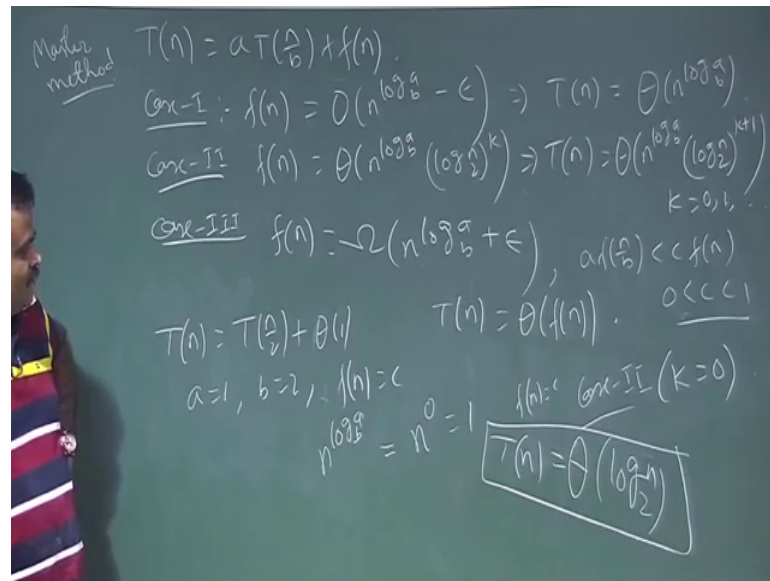 Master method
T(n) = a T(n/b) + f(n).
Case-I :- f(n) = O(n^{log_b a - ϵ}) ⇒ T(n) = Θ(n^{log_b a}).
Case-II f(n) = Θ(n^{log_b a} (log_2 n)^k) ⇒ T(n) = Θ(n^{log_b a} (log_2 n)^{k+1})
k = 0, 1, ..
Case-III f(n) = Ω(n^{log_b a + ϵ}), af(n/b) < c f(n)
T(n) = Θ(f(n)). 0 < c < 1
T(n) = T(n/2) + Θ(1)
a=1, b=2, f(n)=c
n^{log_b a} = n^0 = 1
f(n)=c Case-II (k=0)
T(n) = Θ(log_2 n)